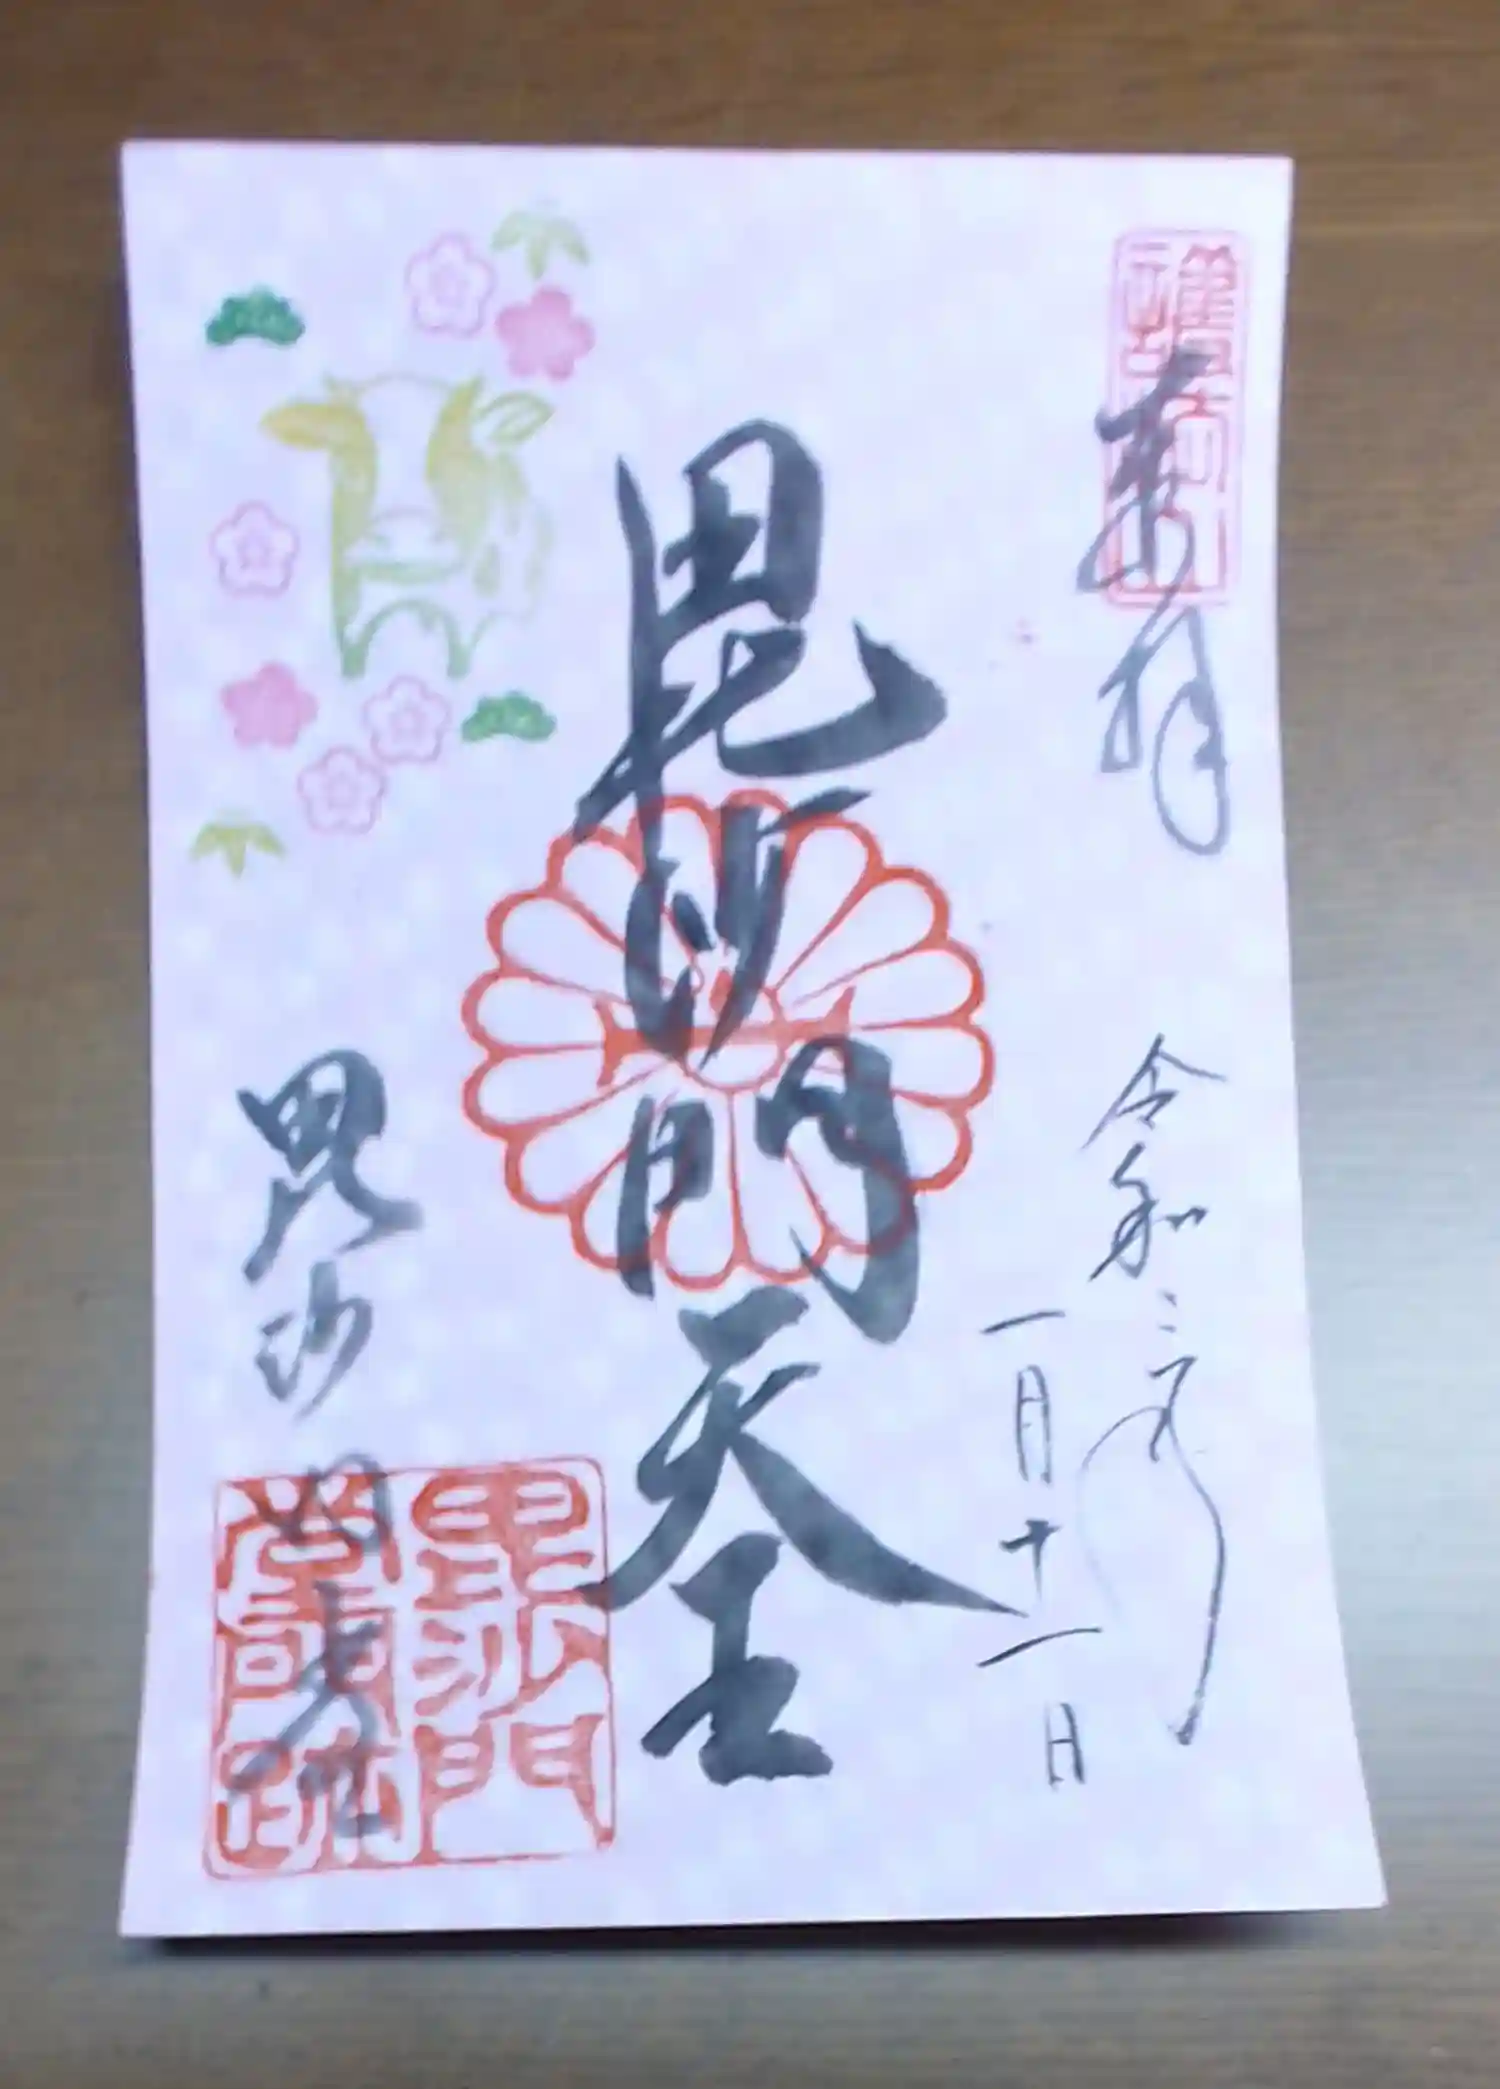 護法山
奉拝
令和三年
一月十一日
毘沙門天王
毘沙門堂
毘沙門
堂門跡